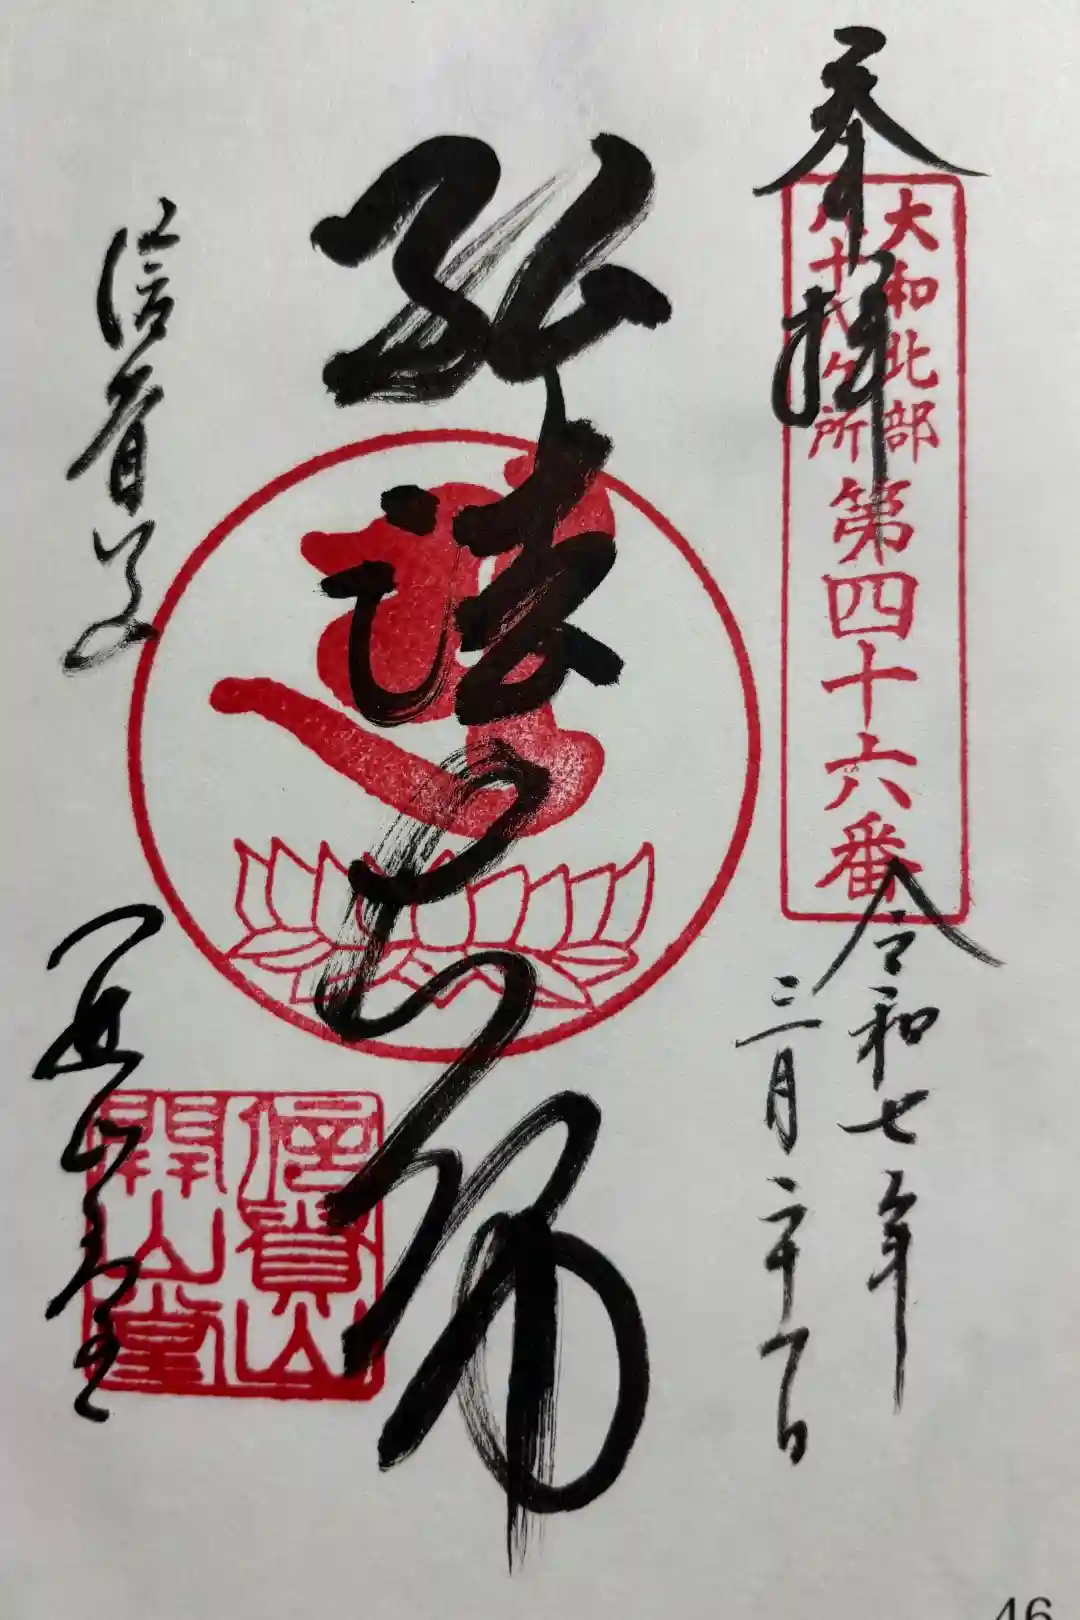 奉拝
大和北部
八十八ヶ所
第四十六番
令和七年
三月二十八日
弘法大師
信貴山
開山堂
信貴山
開山堂
46